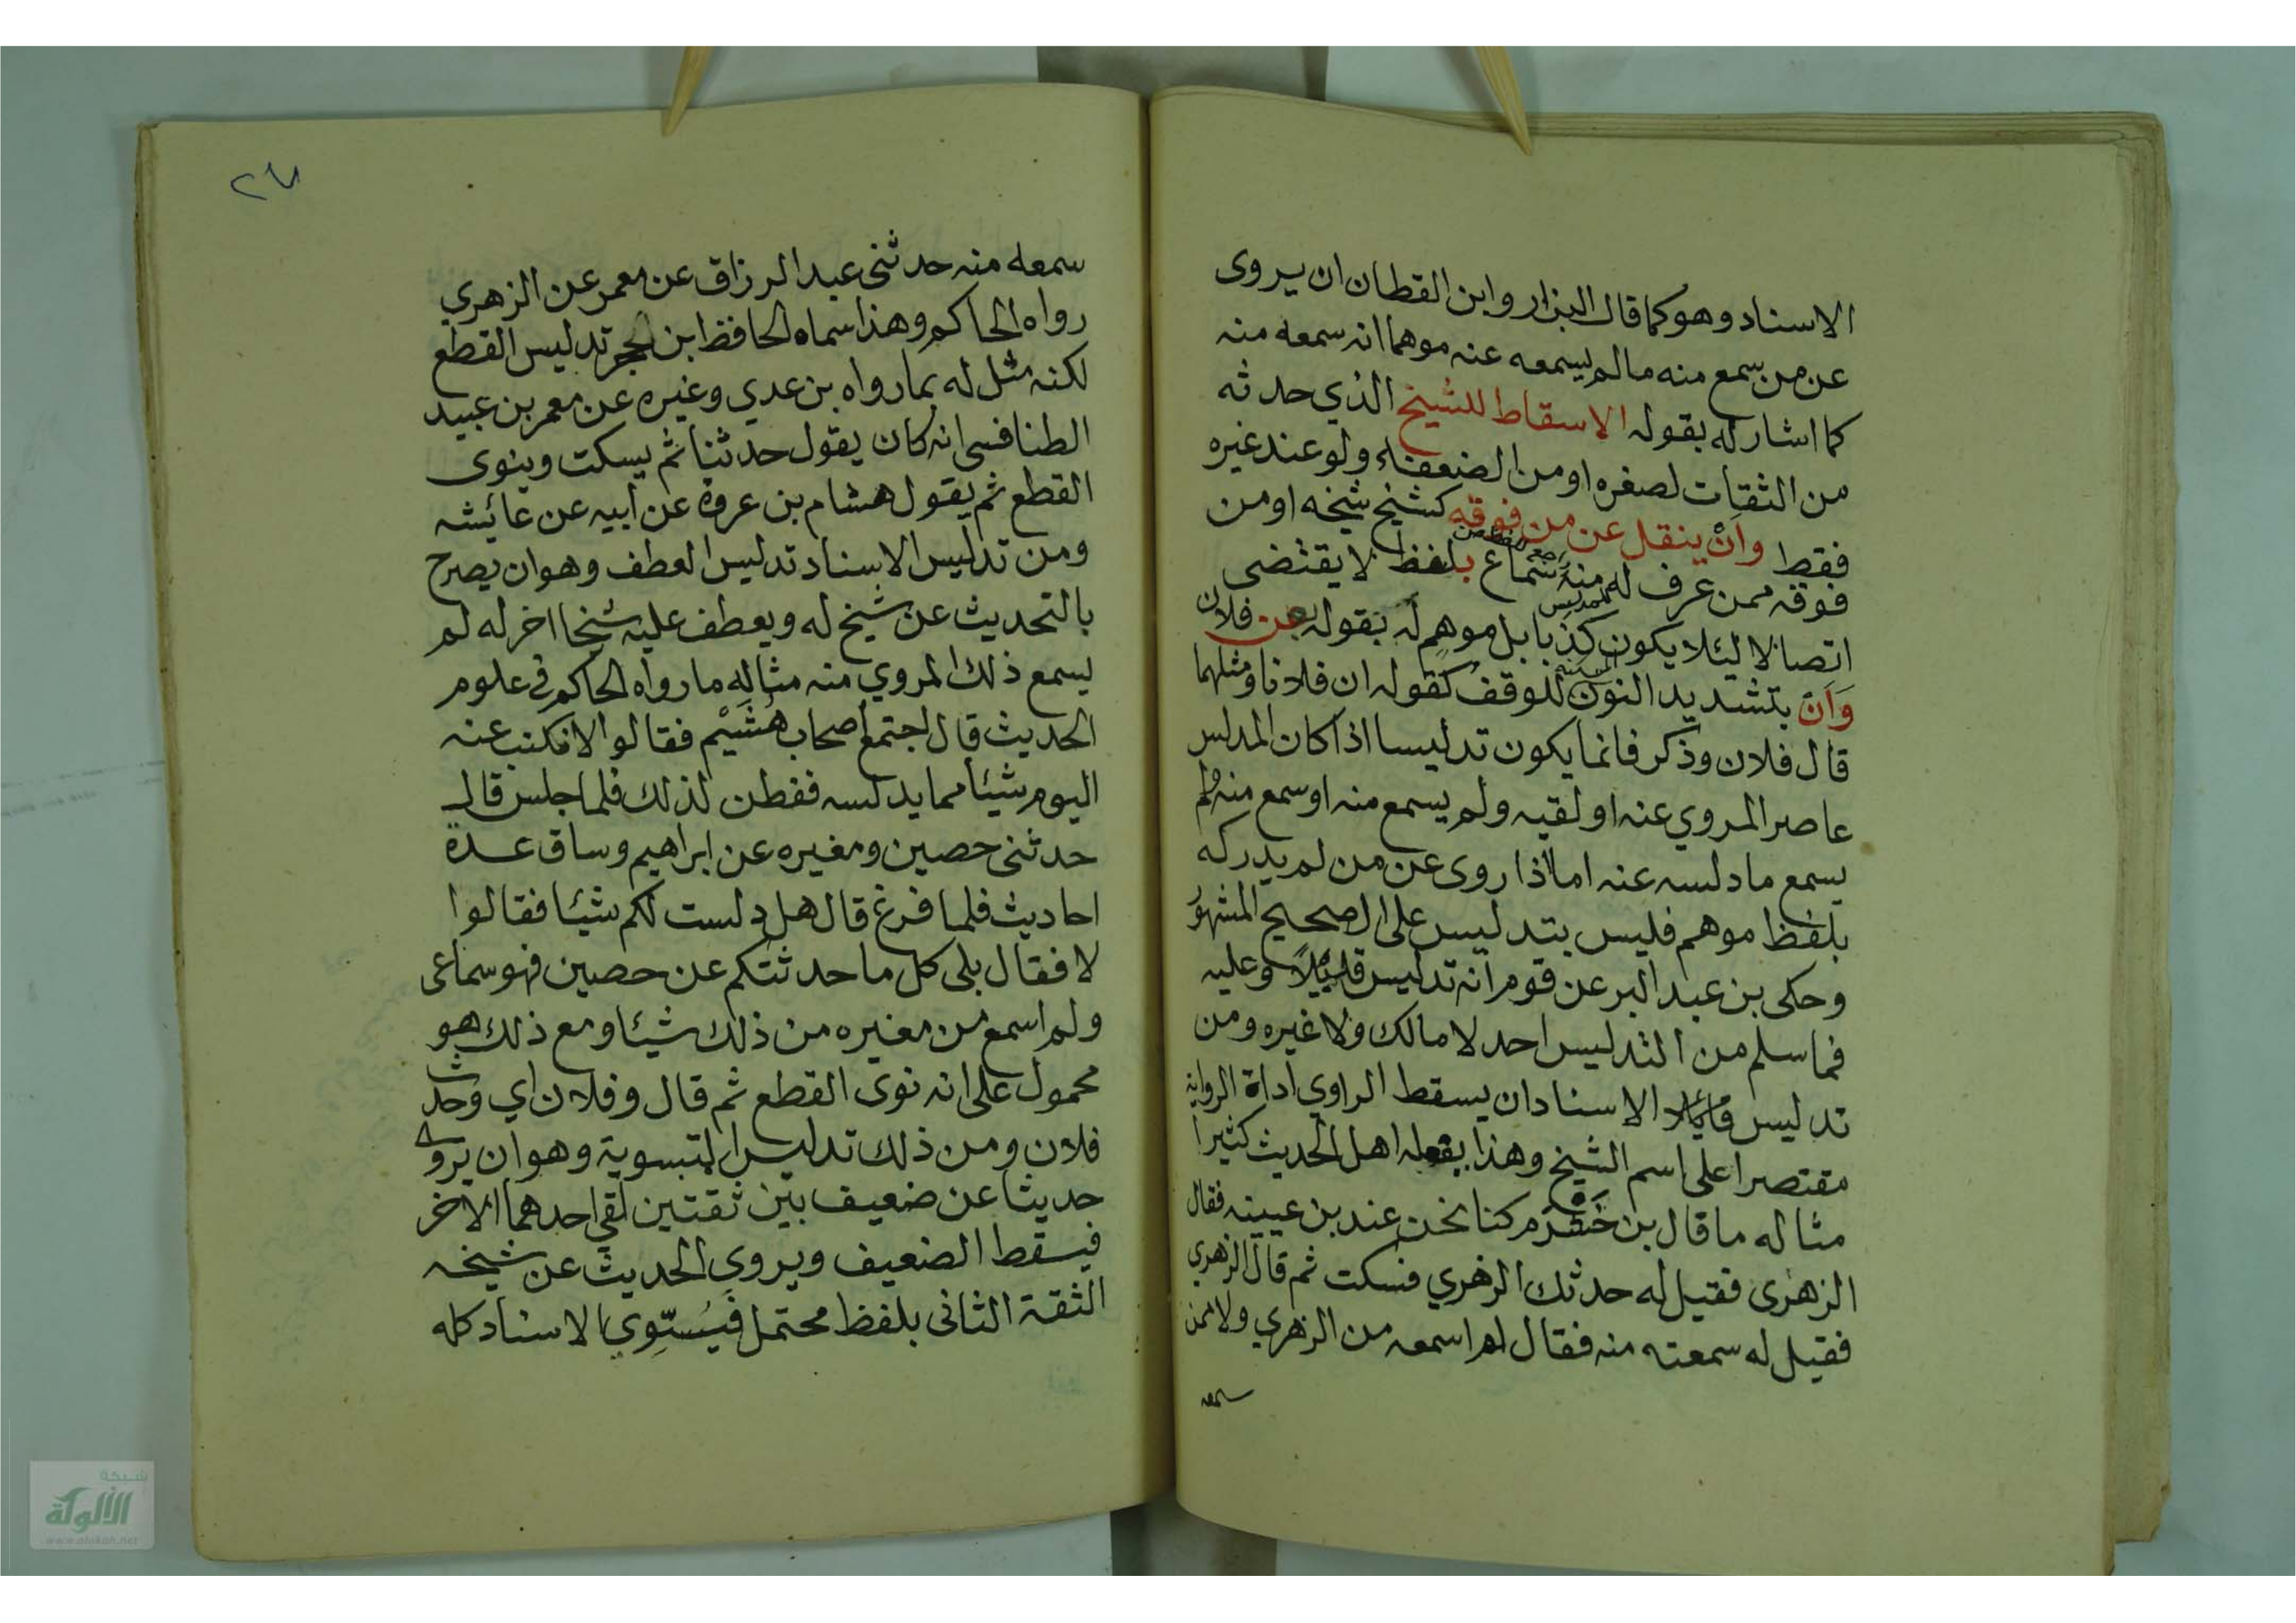 الاسناد وهو كما قال البزار وابن القطان ان يروى
عن من سمع منه ما لم يسمعه عنه موهما انه سمعه منه
كما اشار له بقوله الاسقاط للشيخ الذي حدثه
من الثقات لصغره او من الضعفاء ولو عند غيره
فقط وأنْ ينقل عن من فوقه كشيخ شيخه او من
فوقه ممن عرف له منه سماع بلفظ لا يقتضى
اتصالا ليئلا يكون كذبا بل موهم له بقوله بعن فلان
وَأنّ بتشديد النون المسكنه للوقف كقوله ان فلانا ومثلهما
قال فلان وذكر فانما يكون تدليسا اذا كان المدلس
عاصر المروي عنه او لقيه ولم يسمع منه او سمع منه ولم
يسمع ما دلسه عنه اما اذا روى عن من لم يدركه
بلفظ موهم فليس بتدليس على الصحيح المشهور
وحكى بن عبد البر عن قوم انه تدليس قال وعليه
فما سلم من التدليس احد لا مالك ولا غيره ومن
تدليس الاسناد ان يسقط الراوي اداة الرواية
مقتصرا على اسم الشيخ وهذا يفعله اهل الحديث كثيرا
مثاله ما قال بن خشرم كنا نحن عند بن عيينه فقال
الزهرى فقيل له حدثك الزهري فسكت ثم قال الزهري
فقيل له سمعته منه فقال لم اسمعه من الزهري ولا ممن
سمعه
٢٧
سمعه منه حدثنى عبد الرزاق عن معمر عن الزهري
رواه الحاكم وهذا سماه الحافظ ابن الحجر تدليس القطع
لكنه مثل له بما رواه بن عدي وغيره عن معمر بن عبيد
الطنافسى انه كان يقول حدثنا ثم يسكت وينوى
القطع ثم يقول هشام بن عروة عن ابيه عن عائشه
ومن تدليس الاسناد تدليس العطف وهو ان يصرح
بالتحديث عن شيخ له ويعطف عليه شيخا اخر له لم
يسمع ذلك المروي منه مثاله ما رواه الحاكم في علوم
الحديث قال اجتمع اصحاب هُشَيْم فقالوا لا نكتب عنه
اليوم شيئا مما يدلسه ففطن لذلك فلما جلس قال
حدثنى حصين ومغيره عن ابراهيم وساق عدة
احاديث فلما فرغ قال هل دلست لكم شيئا فقالوا
لا فقال بلى كل ما حدثتكم عن حصين فهو سماعى
ولم اسمع من مغيره من ذلك شيئا ومع ذلك هو
محمول على انه نوى القطع ثم قال وفلان اي وحدث
فلان ومن ذلك تدليس التسوية وهو ان يروى
حديثا عن ضعيف بين ثقتين لقي احدهما الاخر
فيسقط الضعيف ويروي الحديث عن شيخه
الثقة الثانى بلفظ محتمل فيُسَوّي الاسناد كله
شبكة
الألوكة
www.alukah.net